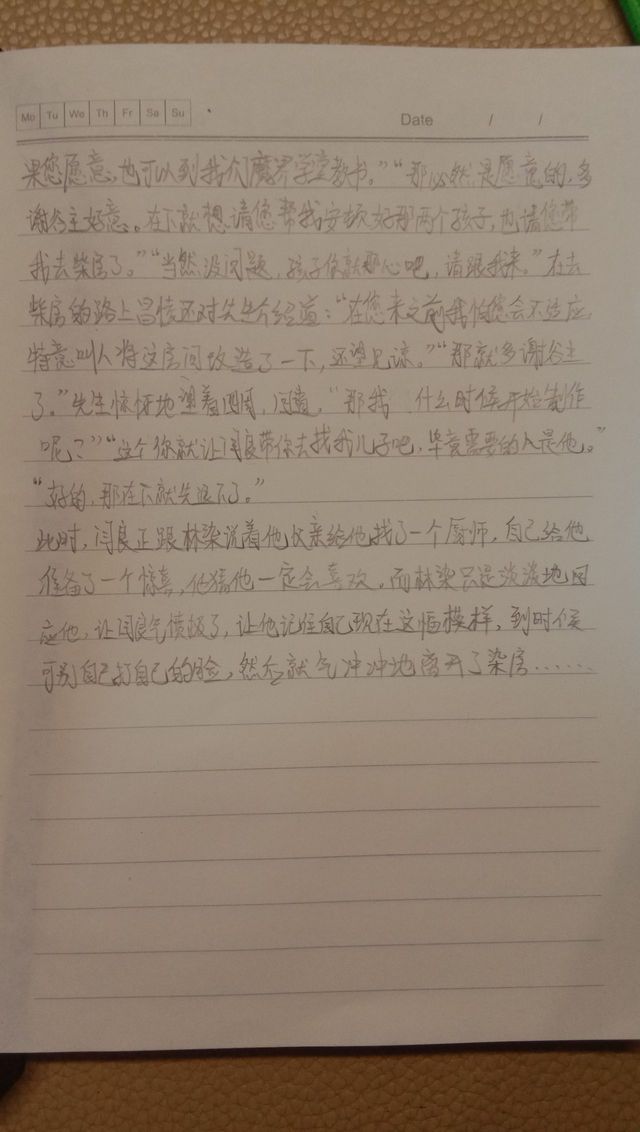 Mo Tu We Th Fr Sa Su
Date / /
果您愿意，也可以到我们魔界学堂教书。”“那必然是愿意的，多
谢谷主好意。在下就想请您帮我安顿好那两个孩子，也请您带
我去柴房了。”“当然没问题，孩子你就放心吧，请跟我来。”在去
柴房的路上昌愤还对先生介绍道：“在您来之前我怕您会不适应，
特意叫人将这房间改造了一下，还望见谅。”“那就多谢谷主
了。”先生惊讶地望着四周，问道，“那我 什么时候开始制作
呢？”“这个你就让闫良带你去找我儿子吧，毕竟需要的人是他。”
“好的，那在下就先退下了。”
此时，闫良正跟林染说着他父亲给他找了一个厨师，自己给他
准备了一个惊喜，他猜他一定会喜欢。而林染只是淡淡地回
应他，让闫良气愤极了，让他记住自己现在这幅模样，到时候
可别自己打自己的脸，然后就气冲冲地离开了染房……